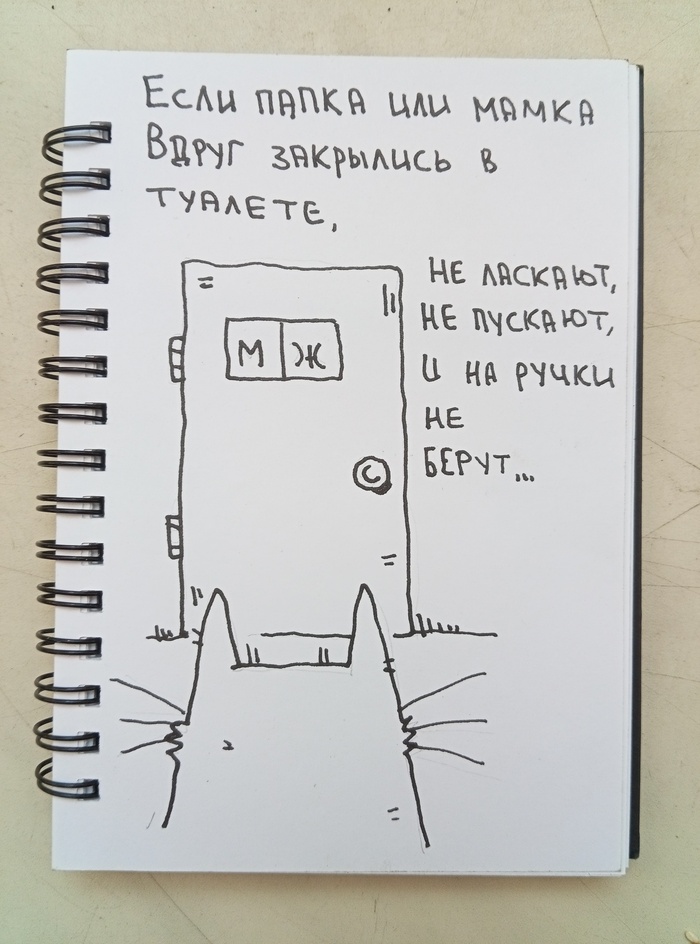 Если папка или мамка
вдруг закрылись в
туалете,
не ласкают,
не пускают,
и на ручки
не
берут...
М Ж